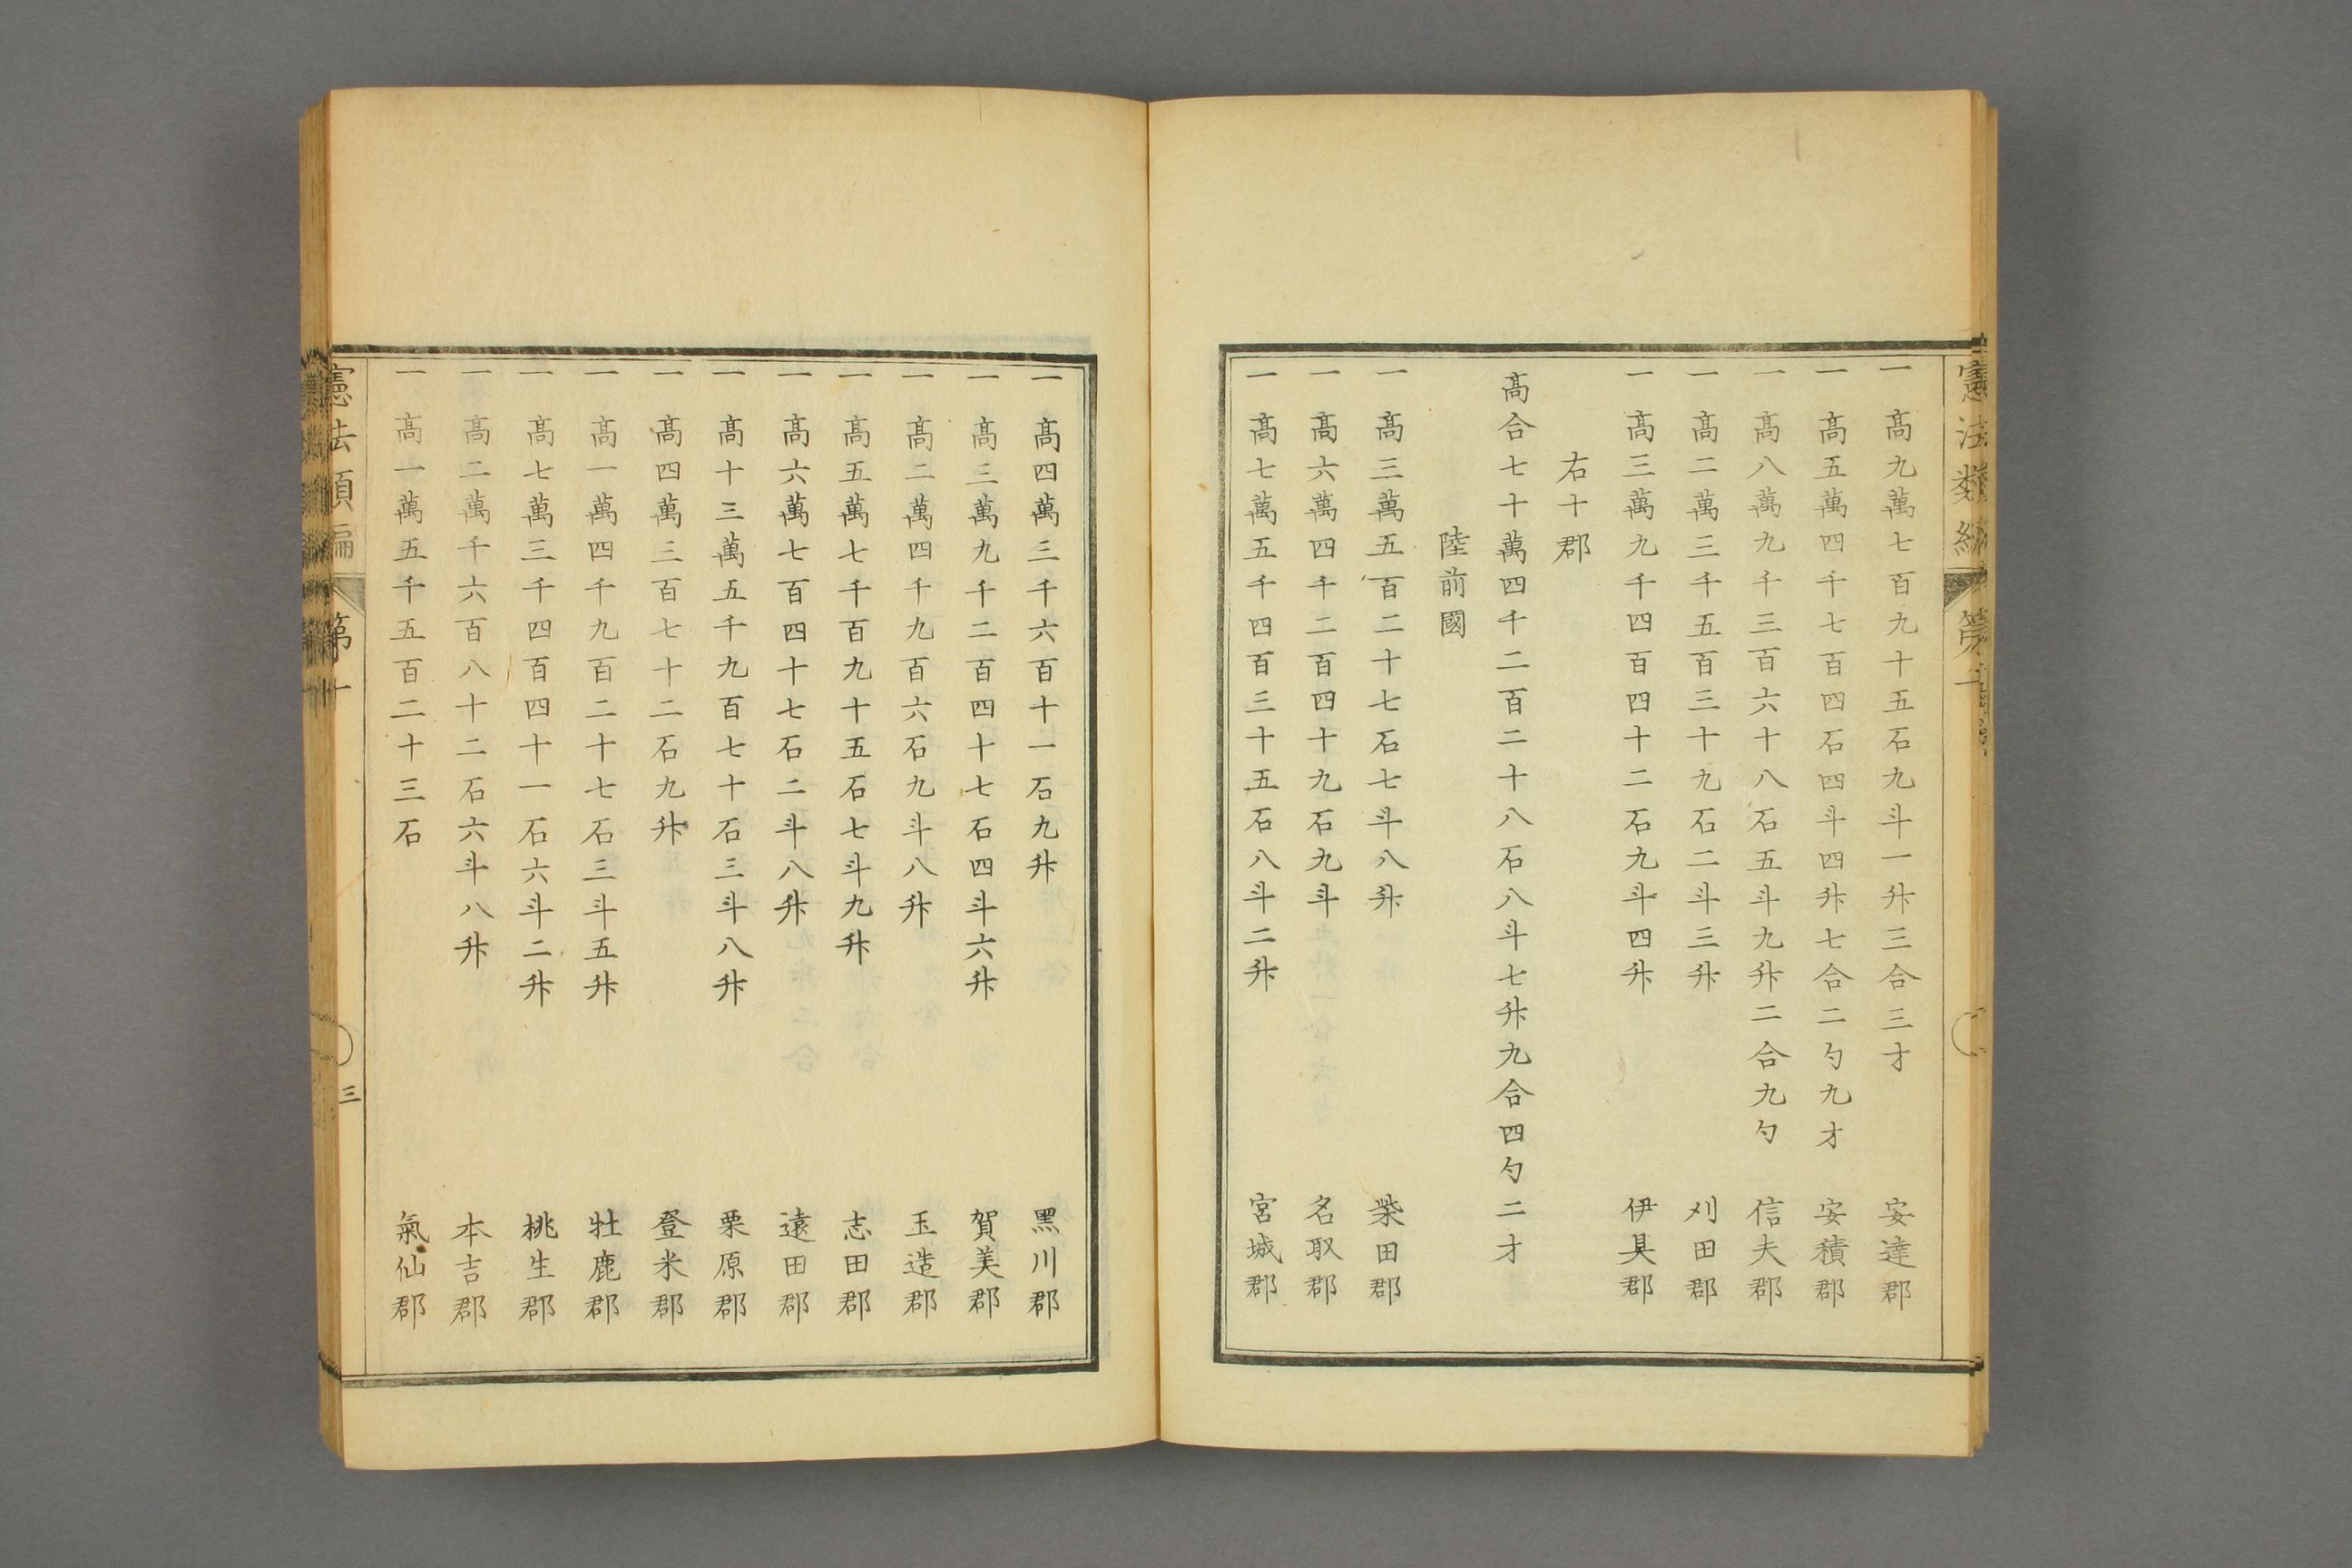 憲法類編 第二
一 高九萬七百九十五石九斗一升三合三才 安達郡
一 高五萬四千七百四石四斗四升七合二勺九才 安積郡
一 高八萬九千三百六十八石五斗九升二合九勺 信夫郡
一 高二萬三千五百三十九石二斗三升 刈田郡
一 高三萬九千四百四十二石九斗四升 伊具郡
右十郡
高合七十萬四千二百二十八石八斗七升九合四勺二才
陸前國
一 高三萬五百二十七石七斗八升 柴田郡
一 高六萬四千二百四十九石九斗 名取郡
一 高七萬五千四百三十五石八斗二升 宮城郡
一 高四萬三千六百十一石九升 黑川郡
一 高三萬九千二百四十七石四斗六升 賀美郡
一 高二萬四千九百六石九斗八升 玉造郡
一 高五萬七千百九十五石七斗九升 志田郡
一 高六萬七百四十七石二斗八升 遠田郡
一 高十三萬五千九百七十石三斗八升 栗原郡
一 高四萬三百七十二石九升 登米郡
一 高一萬四千九百二十七石三斗五升 牡鹿郡
一 高七萬三千四百四十一石六斗二升 桃生郡
一 高二萬千六百八十二石六斗八升 本吉郡
一 高一萬五千五百二十三石 氣仙郡
憲法類編 第十 三